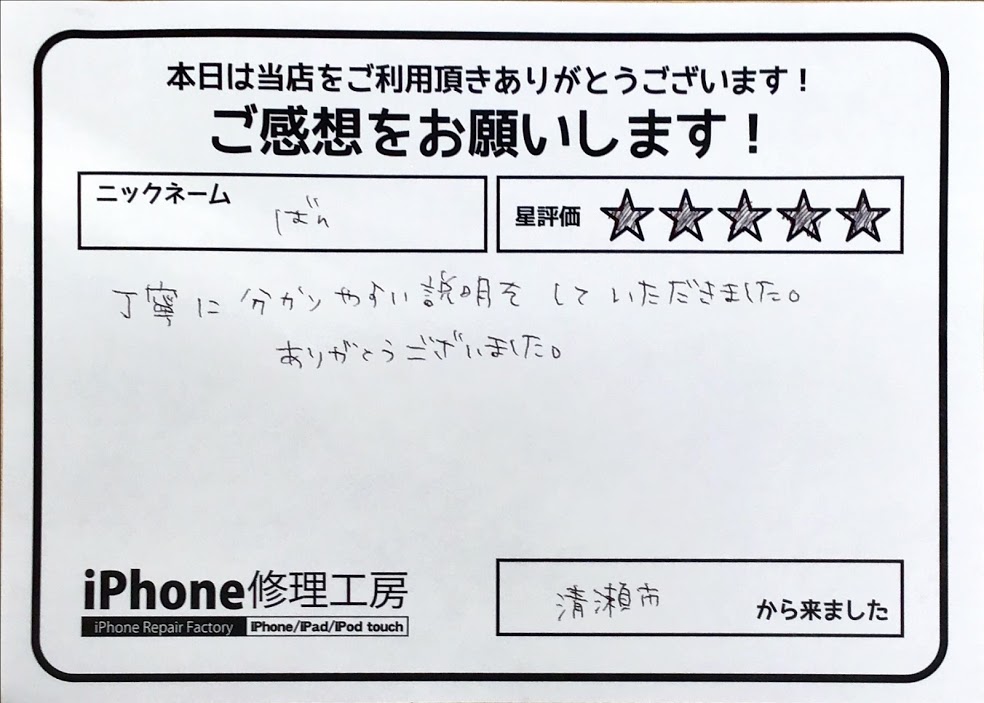 本日は当店をご利用頂きありがとうございます！
ご感想をお願いします！
ニックネーム
ばん
星評価
丁寧に分かりやすい説明をしていただきました。
ありがとうございました。
iPhone修理工房
iPhone Repair Factory iPhone/iPad/iPod touch
清瀬市 から来ました